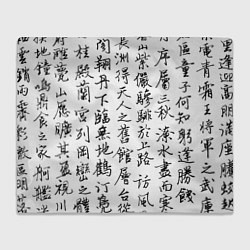 里逢迎高朋滿座騰
紫電青霜王將軍之武庫
童子何知躬逢勝餞
序屬三秋潦水盡而寒
山紫儼驂騑於上路訪風
長洲得天人之舊館層
閣翔丹下臨無地鶴汀鳧
桂殿蘭宮列岡巒之體
山原曠其盈視川
撲地鐘鳴鼎食之家舸艦
雲銷雨霽彩徹區明